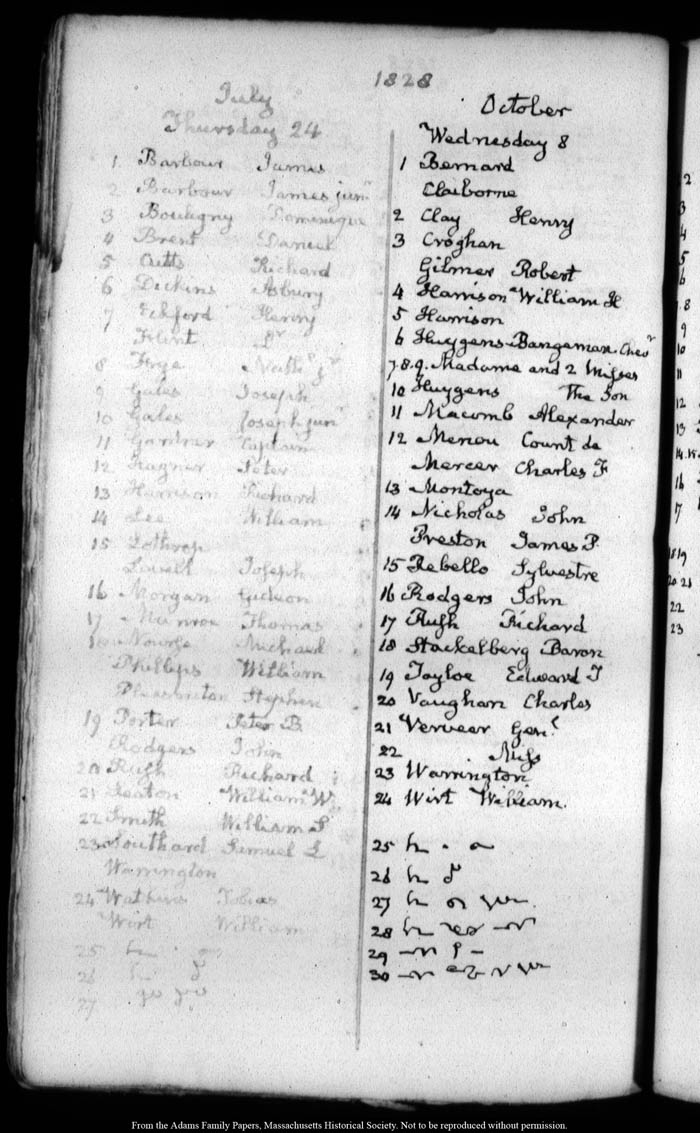 1828
July
Thursday 24
1. Barbour James
2 Barbour James junr
3 Bouligny Dominique
4 Brent Daniel
5 Cutts Richard
6 Dickins Asbury
7 Eckford Henry
Flint Dr
8 Frye Nathl jr
9 Gales Joseph
10 Gales Joseph junr
11 Gardner Captain
12 Hagner Peter
13 Harrison Richard
14 Lee William
15 Lothrop
Lovell Joseph
16 Morgan Gideon
17 Munroe Thomas
18 Nourse Michael
Phillips William
Pleasonton Stephen
19 Porter Peter B.
Rodgers John
20 Rush Richard
21 Seaton William W.
22 Smith William S
23 Southard Samuel L
Warrington
24 Watkins Tobias
Wirt William
25
26
27
October
Wednesday 8
1 Bernard
Claiborne
2 Clay Henry
3 Croghan
Gilmer Robert
4 Harrison William H
5 Harrison
6 Huygens Bangeman Chevr
7.8.9. Madame and 2 Misses
10 Huygens The Son
11 Macomb Alexander
12 Menou Count de
Mercer Charles F
13 Montoya
14 Nicholas John
Preston James P.
15 Rebello Sylvestre
16 Rodgers John
17 Rush Richard
18 Stackelberg Baron
19 Tayloe Edward T
20 Vaughan Charles
21 Verveer Genl
22 Miss
23 Warrington
24 Wirt William.
25
26
27
28
29
30
2
3
4
5
6
7.8
9
10
11
12
13
14
16
17
18 19
20 21
22
23
From the Adams Family Papers, Massachusetts Historical Society. Not to be reproduced without permission.